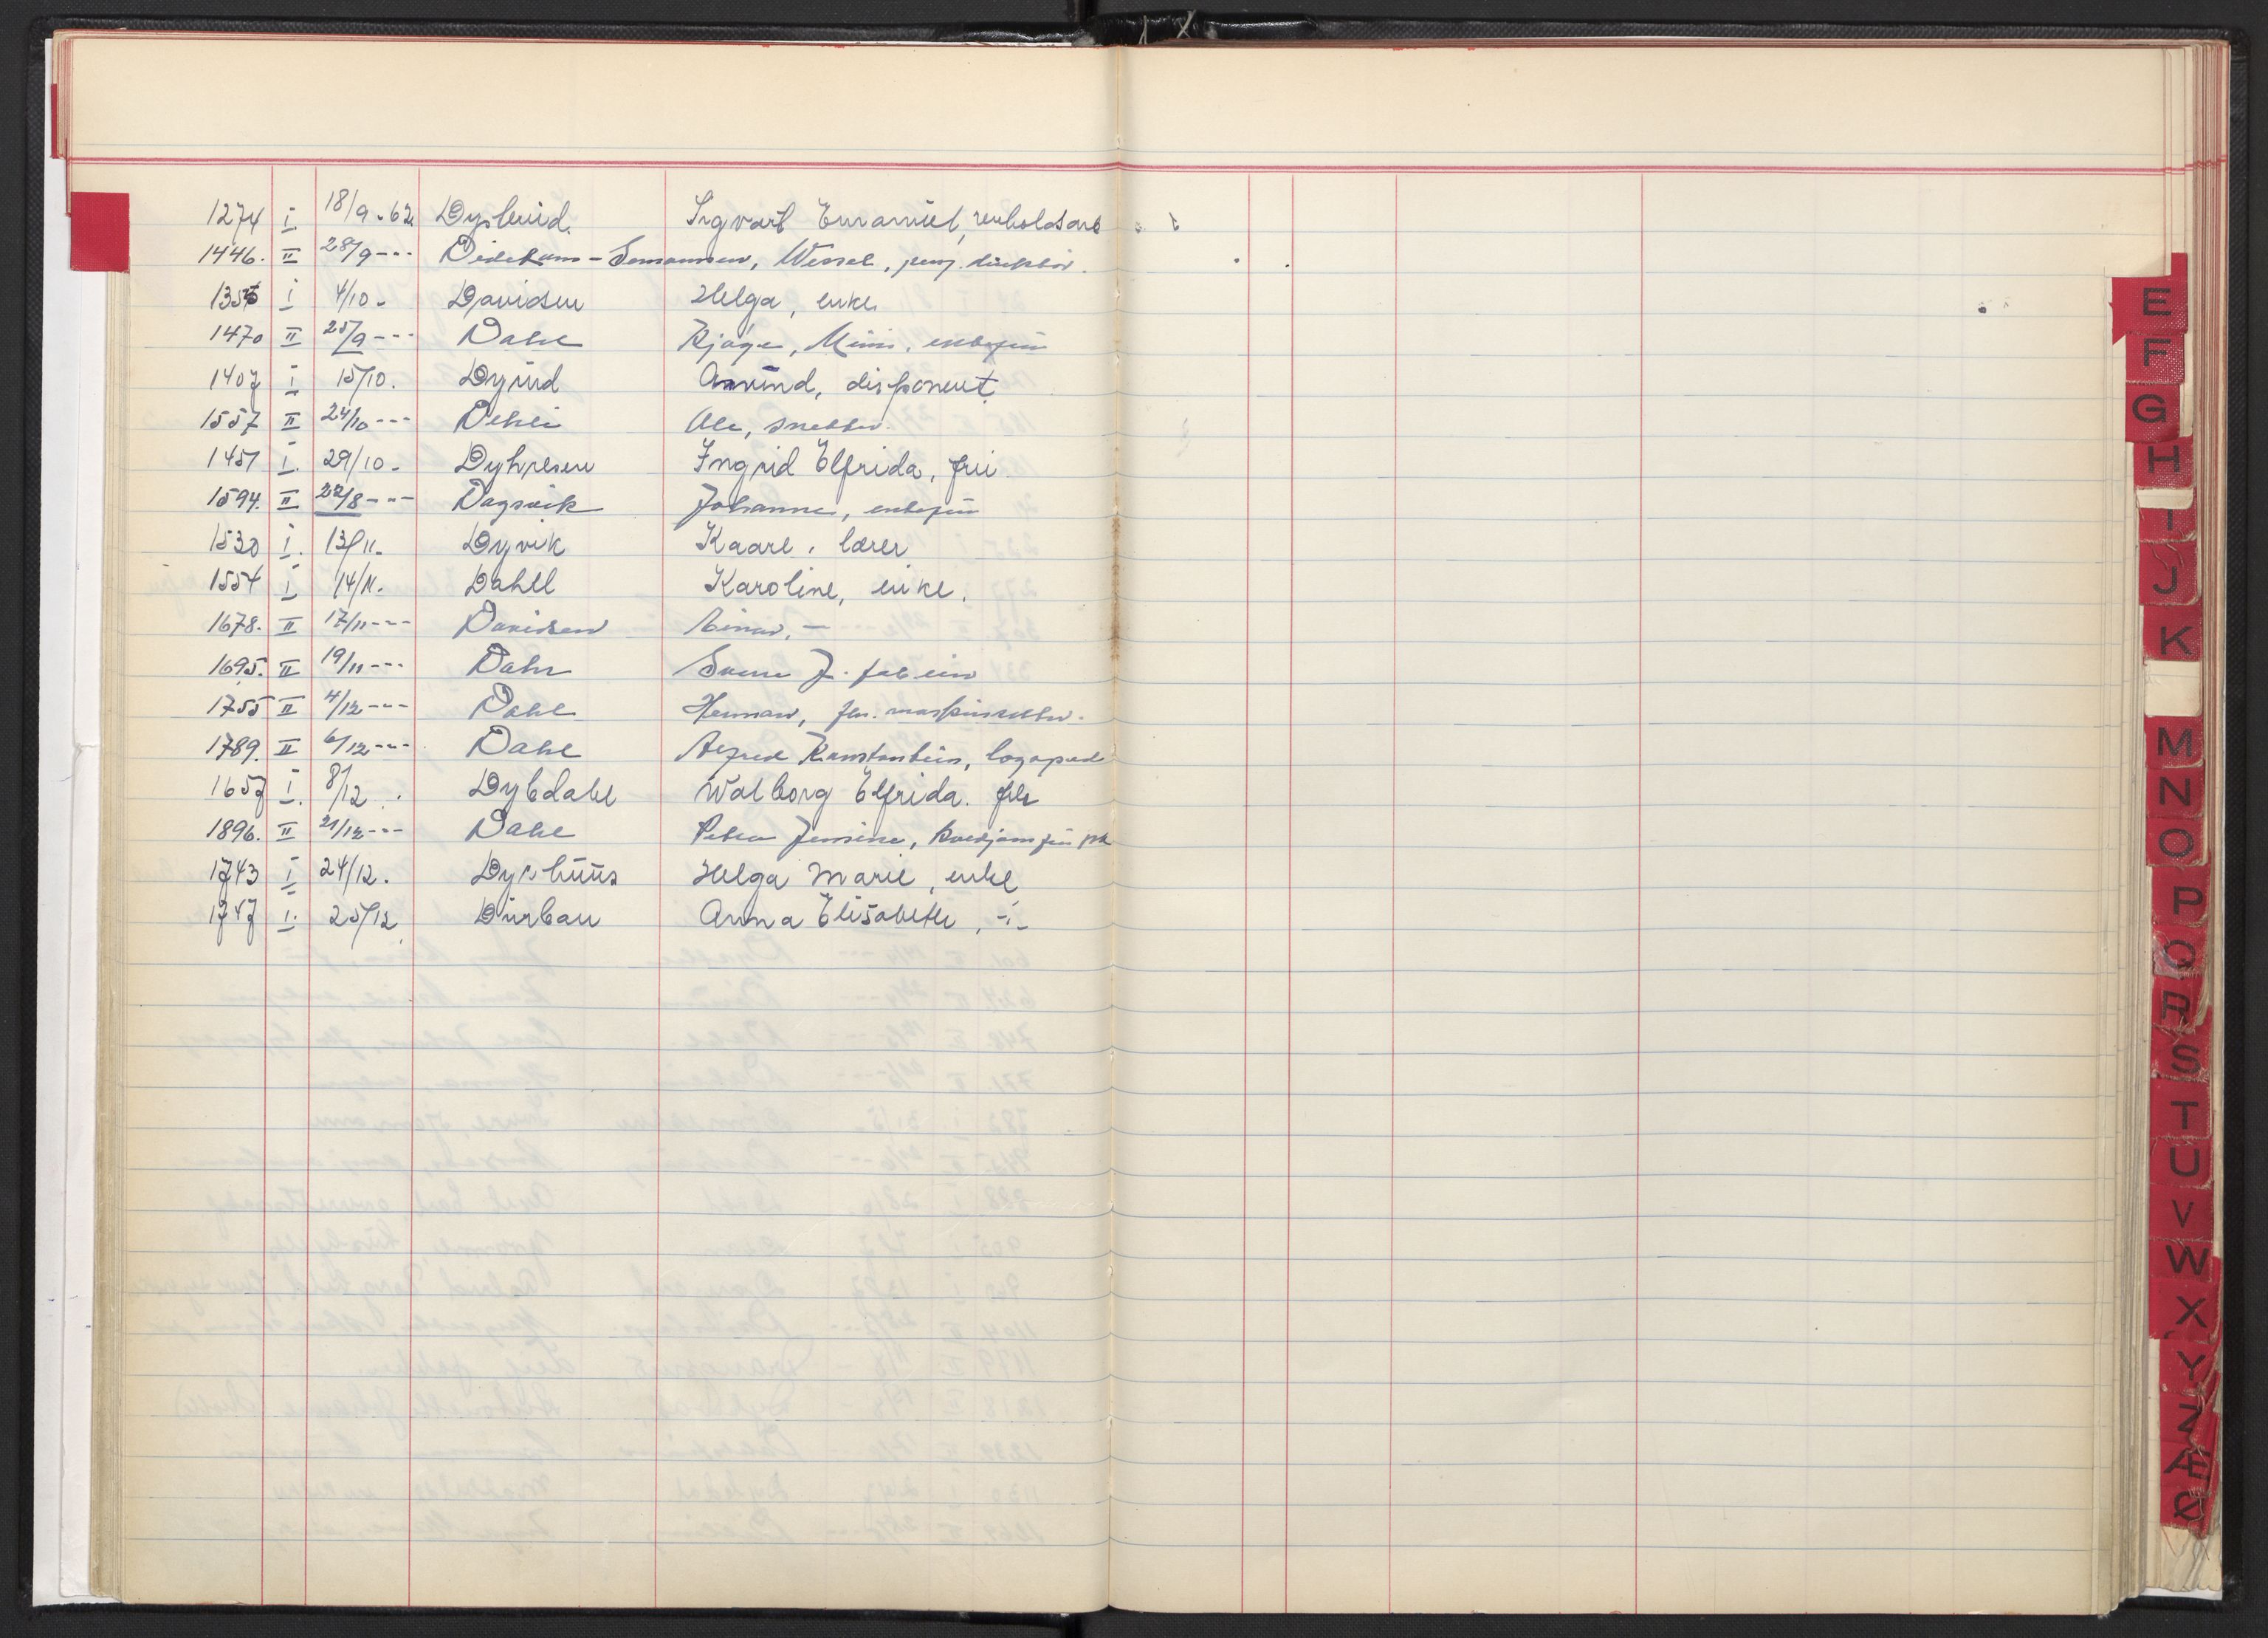 1274 I. 18/9-62 Dyslund. Sigvart Emanuel, renholdsarb
1446. II 28/9 --- Wessel, penj. direktør.
1355 I 4/10- Davidsen Helga, enke
1470 II 25/9 --- Dahl Mimi, enkefru
1407 I 15/10. Dyrud Amund, disponent
1557 II 24/10 --- Dehli Ole, snekker.
1451 I. 29/10- Dyhresen Ingrid Elfrida, fru
1594. II 22/8 --- Dagsvik Johanne, enkefru
1530 I. 13/11- Dyvik Kaare, lærer
1554 I 14/11. Dahll Karoline, enke.
1678. II 17/11 --- Davidsen Einar, -
1695. II 19/11 --- Dahr Sverre J.
1755 II 4/12 --- Dahl Herman,
1789. II 6/12 --- Dahl Alfred Konstantin, logoped
1657 I. 8/12. Dybdahl Walborg Elfrida. frk
1896. II 21/12 --- Dahl Petra Jensine,
1743 I 24/12. Dyrhuus Helga Marie, enke
1747 I. 25/12. Durban Anna Elisabeth, -"-
E
F
G
H
I
J
K
M
N
O
P
Q
R
S
T
U
V
W
X
Y
Z
Æ
Ø